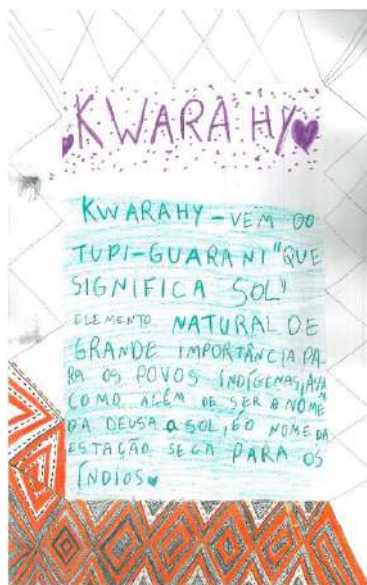 KWARAHY
KWARAHY-VEM DO
TUPI-GUARANI "QUE
SIGNIFICA SOL"
ELEMENTO NATURAL DE
GRANDE IMPORTÂNCIA PA-
RA OS POVOS INDÍGENAS,
COMO ALÉM DE SER O NOME
DA DEUSA a SOL, É O NOME DA
ESTAÇÃO SECA PARA OS
ÍNDIOS